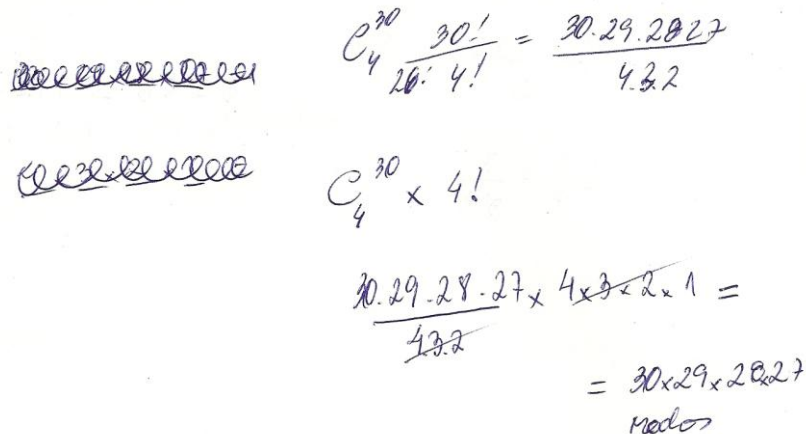 C₄³⁰ 30!/26! 4! = 30.29.28 27/4.3.2
C₄³⁰ × 4!
30.29.28.27/4.3.2 × 4×3×2×1 =
= 30×29×28×27
modos